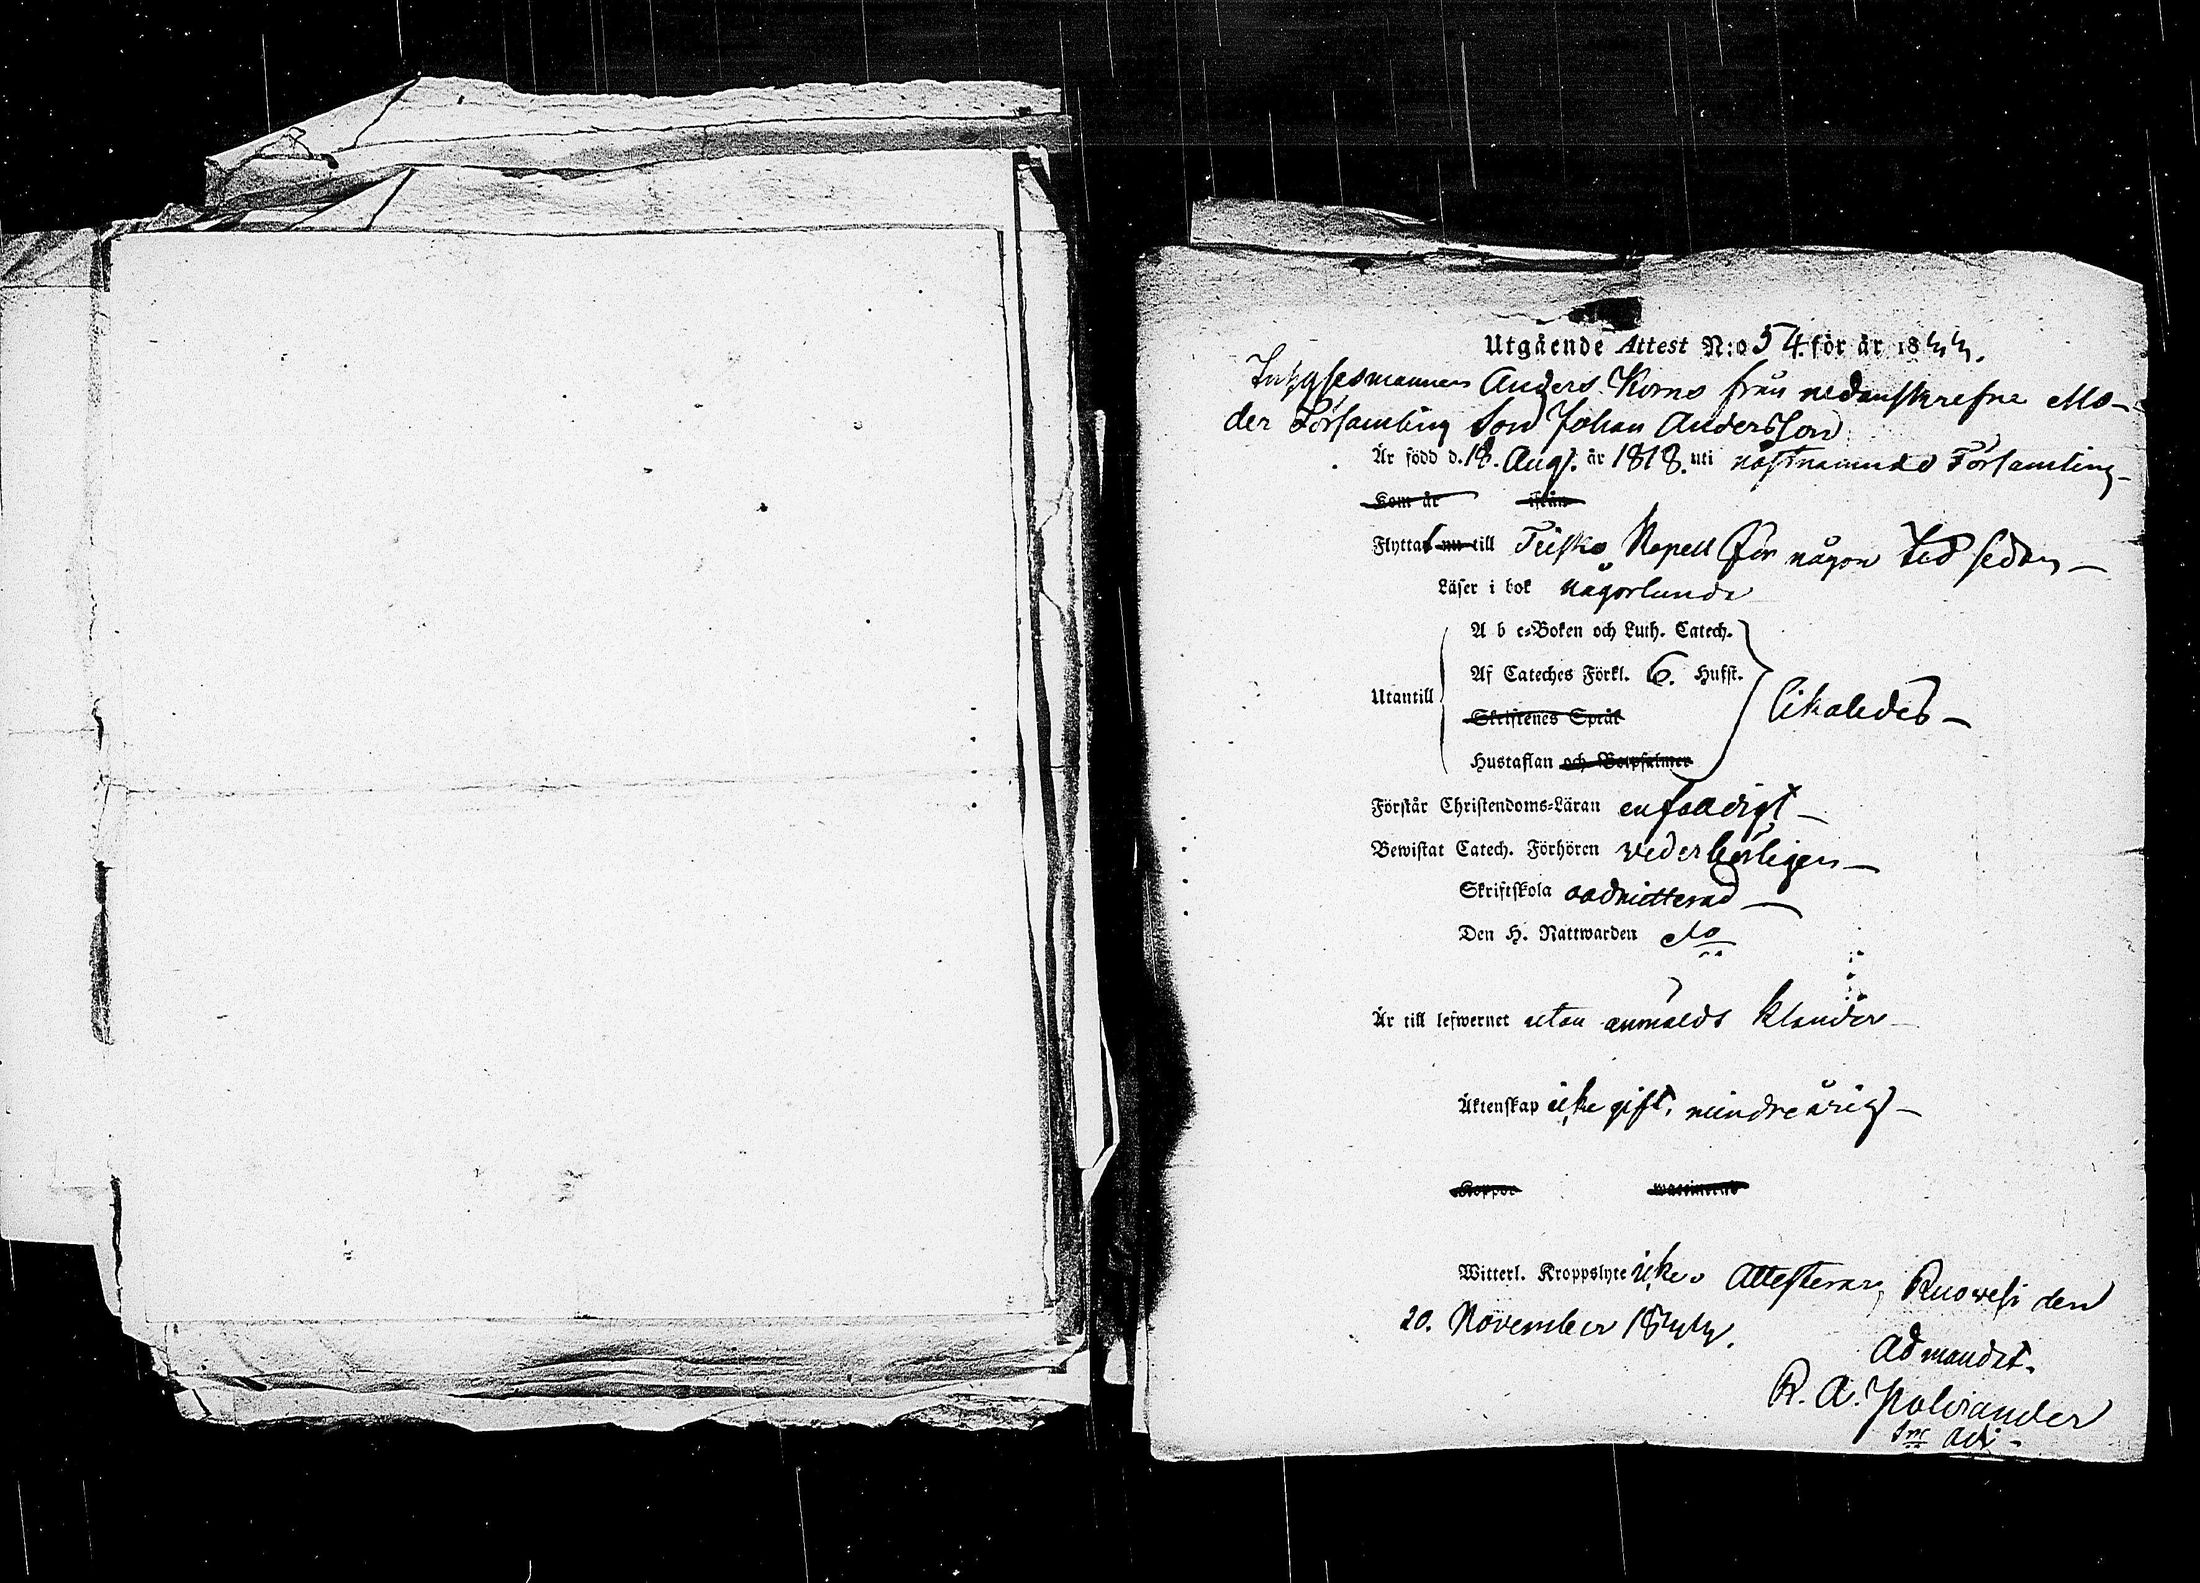 Utgående Attest N:o 54. för år 1844.
Inhysesmannen Anders Korno från nedanskrefne Mo-
der Församling Son Johan Andersson
Är född d. 18. Augt. år 1818. uti nästnämnde Församling
Kom år ifrån
Flyttat nu till Teisko Kapell för någon tid sedan
Läser i bok någorlunda
A b c-Boken och Luth. Catech.
Af Cateches Förkl. 6. Hufst.
Utantill
Skriftenes Språk
likaledes
Hustaflan och Botpsalmer
Förstår Christendoms-Läran enfaldigt
Bewistat Catech. Förhören vederbörligen
Skriftskola oadmitterad
Den H. Nattwarden
Är till lefwernet utan anmäldt klander
Äktenskap icke gift, mindreårig
Koppor waccinerad
Witterl. Kroppslyte icke. Attesterar, Ruowesi den
20. November 1844.
Ad mandat.
R. A. Polviander
Adj.